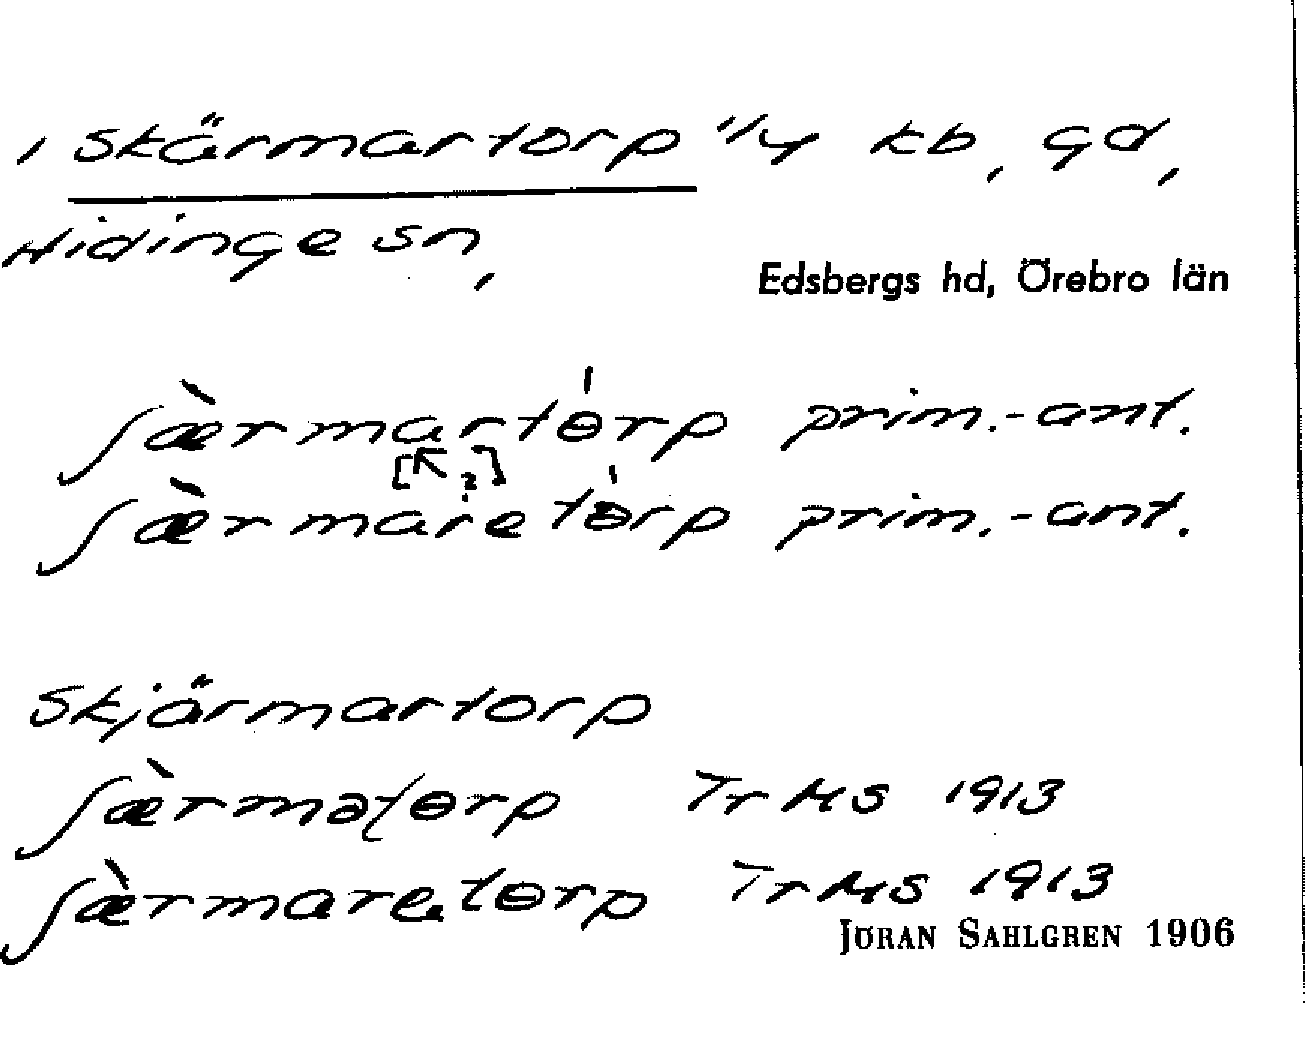 1 Skärmartorp 11/4 kb, gd,
Hidinge sn,
Edsbergs hd, Örebro län
ʃæ̀rmartɵ́rp prim.-ant.
[↖?]
ʃæ̀rmaretɵ́rp prim.-ant.
Skjärmartorp
ʃæ̀rmaʈɵrp Tr MS 1913
ʃæ̀rmaretɵrp Tr MS 1913
JÖRAN SAHLGREN 1906